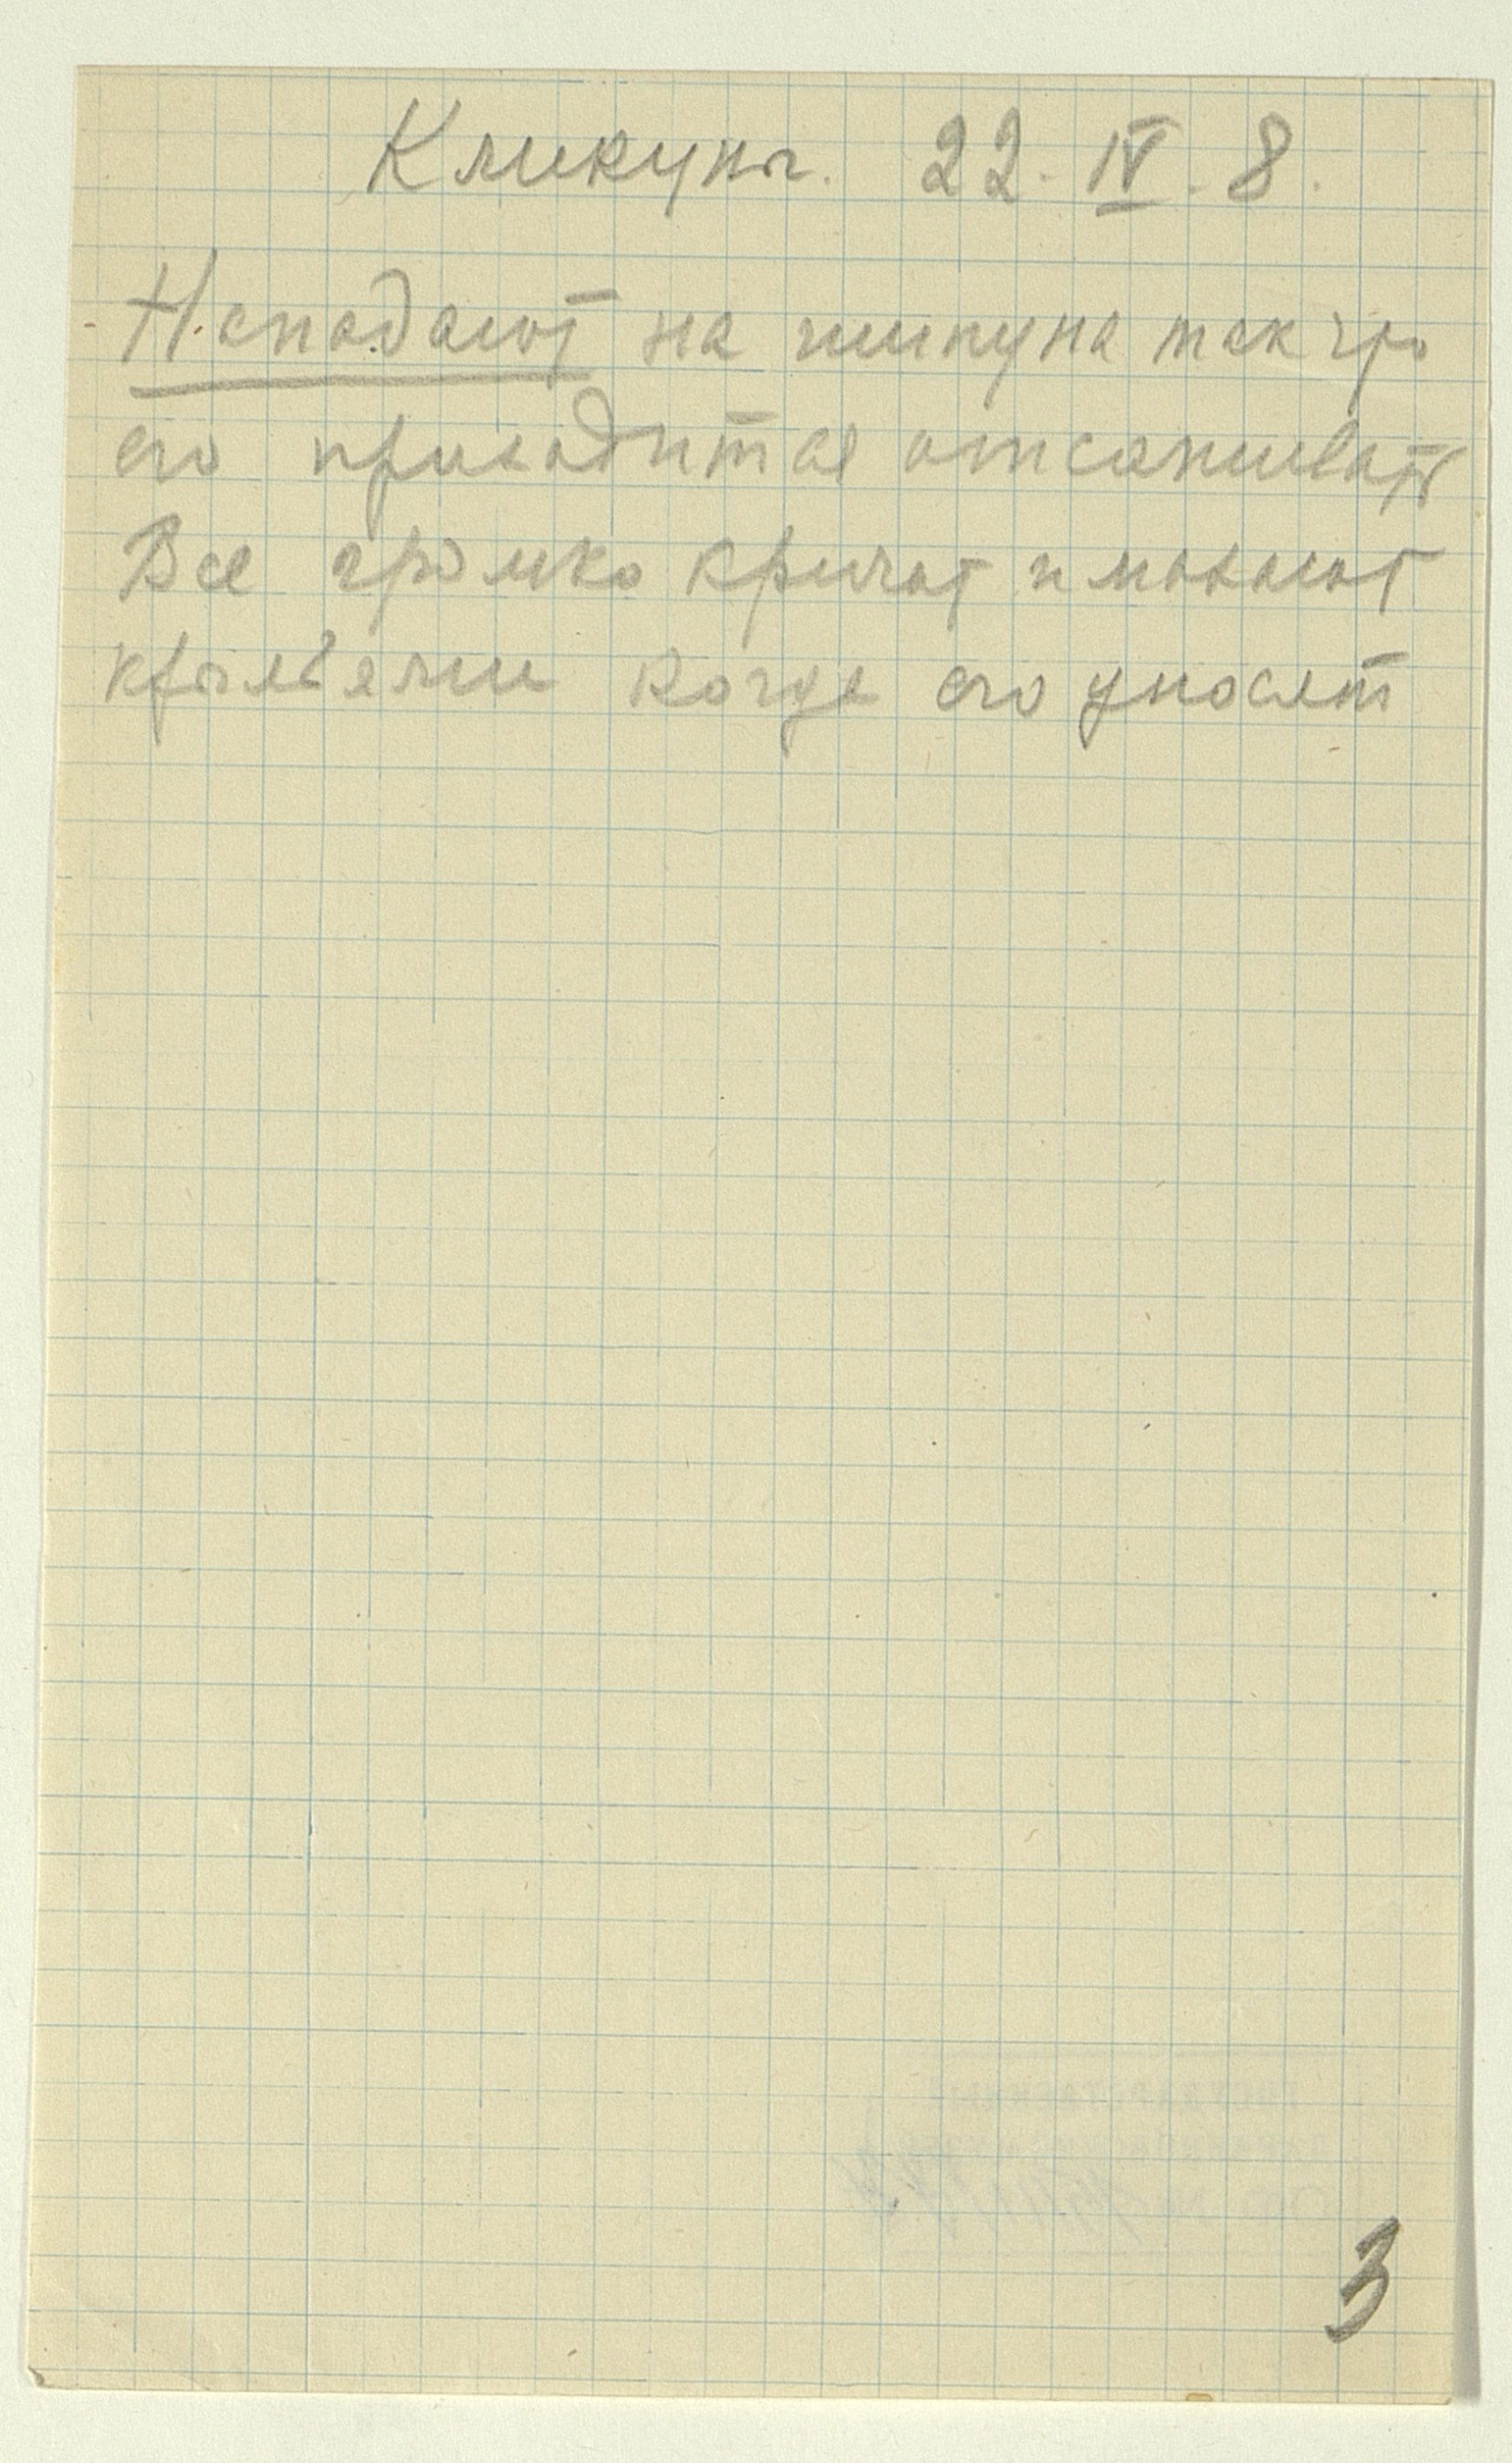 Кликуны. 22. IV. 8.
Нападают на шипуна так что
его приходится отсаживать
Все громко кричат и махают
крыльями когда его уносят
3